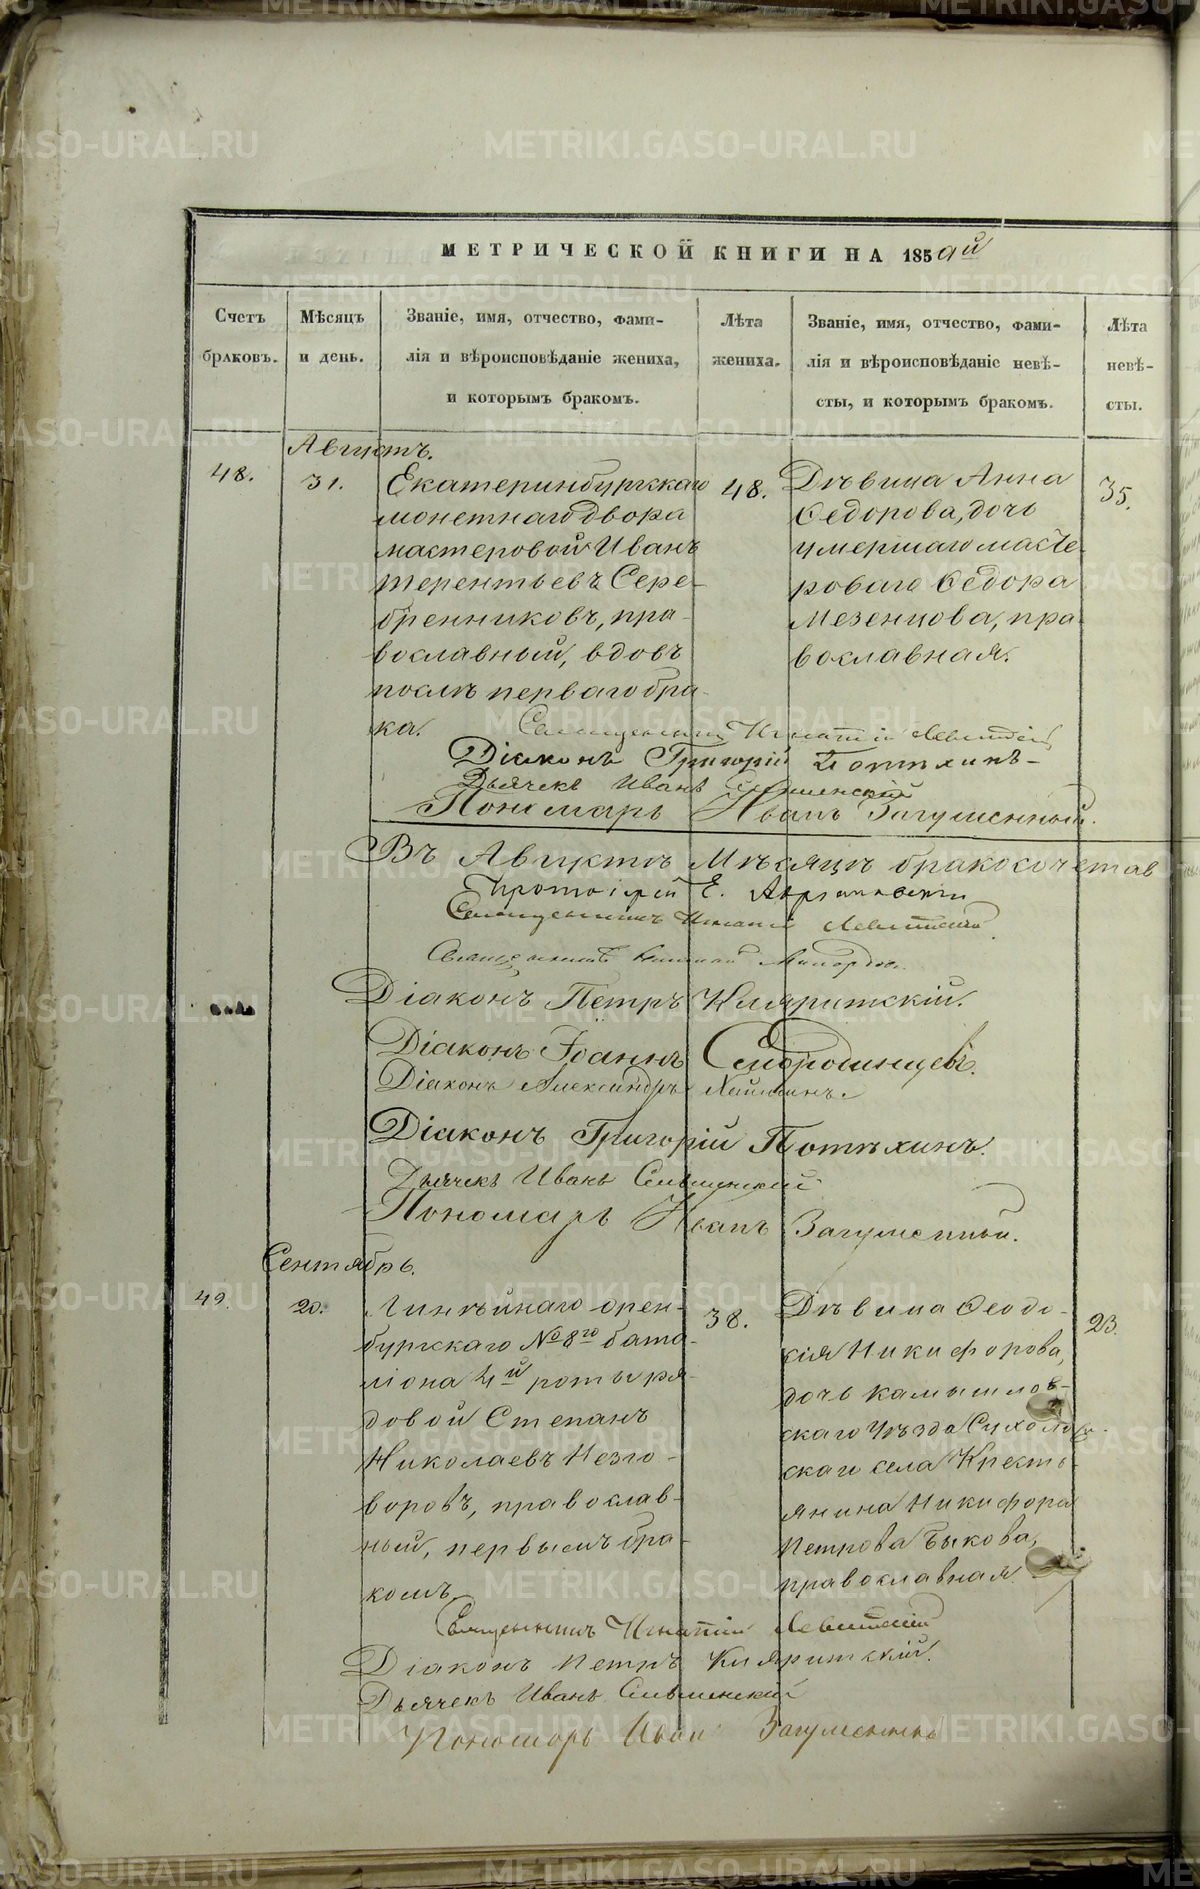 МЕТРИЧЕСКОЙ КНИГИ НА 185
Счетъ браковъ.
Мѣсяцъ и день.
Званіе, имя, отчество, фами-
лія и вѣроисповѣданіе жениха,
и которымъ бракомъ.
Лѣта жениха.
Званіе, имя, отчество, фами-
лія и вѣроисповѣданіе невѣ-
сты, и которымъ бракомъ.
Лѣта невѣ-
сты.
Августъ.
48.
31.
Екатеринбургскаго
монетнаго двора
мастеровой Иванъ
Терентьевъ Сере-
бренниковъ, пра-
вославный, вдовъ
послѣ перваго бра-
ка.
48.
Дѣвица Анна
Ѳедорова, дочь
умершаго масте-
роваго Ѳедора
Мезенцова, пра-
вославная.
35.
Священникъ Игнатій Левитскій
Діаконъ Григорій Потѣхинъ
Дьячекъ Иванъ
Пономарь Иванъ Загуменный.
Въ Августѣ Мѣсяцѣ бракосочетав
Протоіерей Е.
Священникъ Игнатій Левитскій
Священникъ
Діаконъ Петръ
Діаконъ Іоаннъ Смородинцевъ.
Діаконъ Александръ
Діаконъ Григорій Потѣхинъ.
Дьячекъ Иванъ
Пономарь Иванъ Загуменный.
Сентябрь.
49.
20.
Линѣйнаго орен-
бургскаго №8го бата-
ліона 4й роты ря-
довой Степанъ
Николаевъ Незго-
воровъ, православ-
ный, первымъ бра-
комъ
38.
Дѣвица Ѳеодо-
сія Никифорова,
дочь камышлов-
скаго уѣзда
скаго села Кресть-
янина Никифора
Петрова Быкова,
православная.
23.
Священникъ Игнатій Левитскій
Діаконъ Петръ
Дьячекъ Иванъ
Пономарь Иванъ Загуменный
METRIKI.GASO-URAL.RU